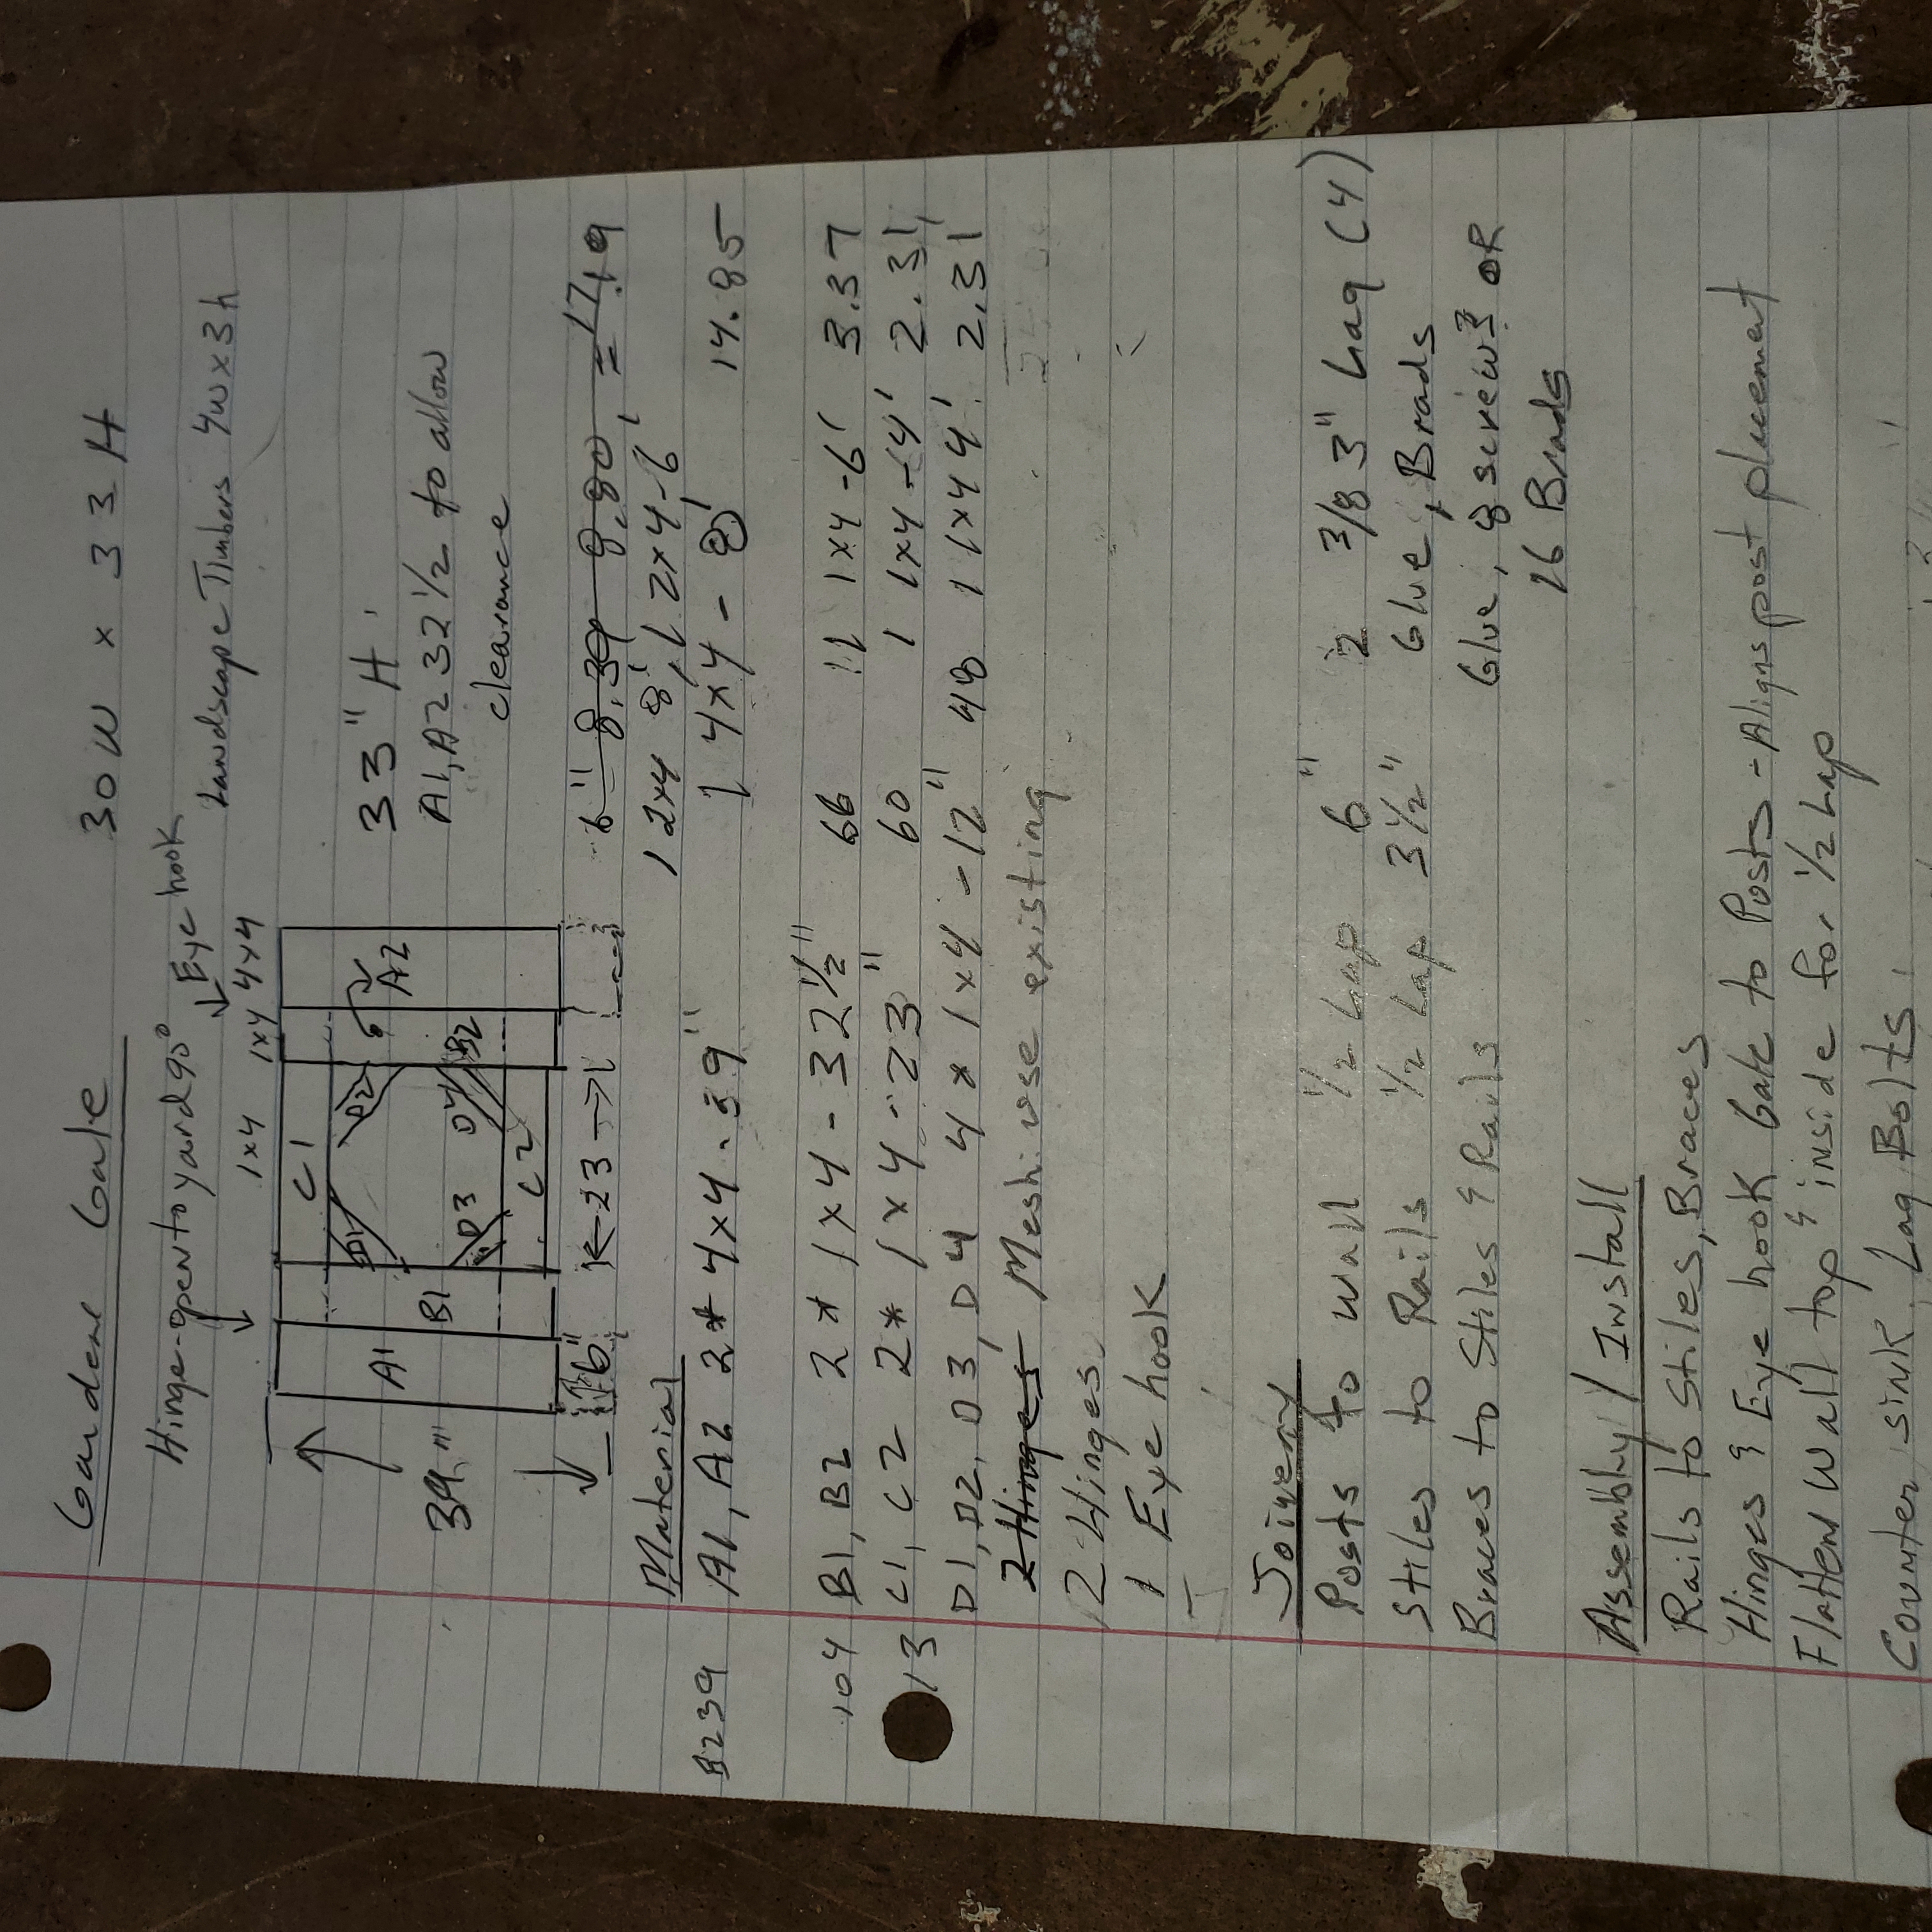 Garden Gate 30W x 33H
Hinge-open to yard 90° Eye hook
Landscape Timbers 4w x 3h
1x4 1x4 4x4
33" H
A1, A2 32 1/2 to allow
clearance
C1
D1 D2 6
A1 B1 B2 A2
D3 D4
C2
39"
6" 23
6" 8.39 8.80 = 17.19
1 2x4 8', 1 2x4-6'
Material
B239 A1, A2 2* 4x4 . 39" 1 4x4 - 8' 14.85
104 B1, B2 2* 1x4 - 32 1/2" 66 11 1x4-6' 3.37
13 C1, C2 2* 1x4 - 23" 60 1 1x4-4' 2.31
D1, D2, D3, D4 4* 1x4 -12" 48 1 1x4 4' 2.31
2 Hinges Mesh: use existing
2 Hinges
1 Eye hook
Joinery
Posts to wall 1/2 Lap 6" 2 3/8 3" Lag (4)
Stiles to Rails 1/2 Lap 3 1/2" Glue, Brads
Braces to Stiles & Rails Glue, 8 screws OR
16 Brads
Assembly / Install
Rails to Stiles, Braces
Hinges & Eye hook Gate to Posts - Aligns post placement
Flatten Wall top & inside for 1/2 Lap
Counter sink Lag Bolts.